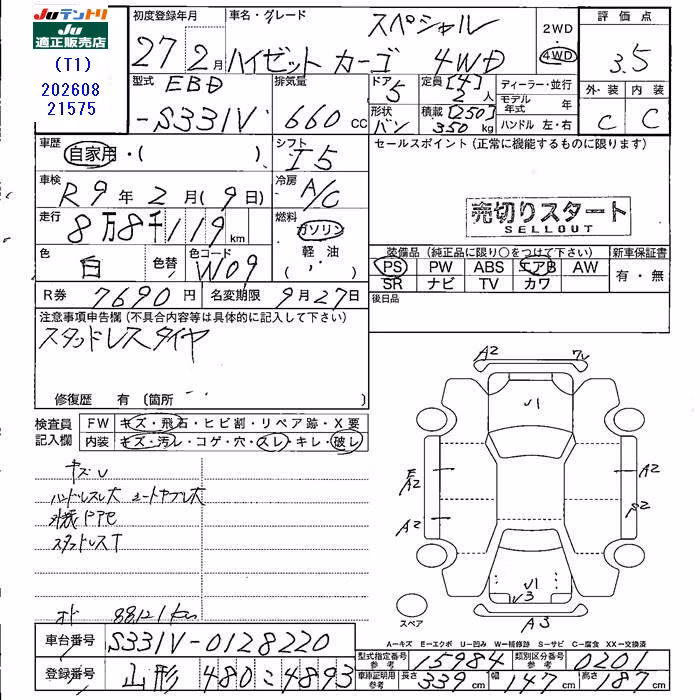 JUテントリ
JU適正販売店
(T1)
202608
21575
初度登録年月
27年2月
車名・グレード
スペシャル
ハイゼット カーゴ 4WD
2WD
・
4WD
評価点
3.5
外・装 内装
C C
型式
EBD
-S331V
排気量
660cc
ドア
5
形状
バン
定員[4]
2人
積載[250]
350kg
ディーラー・並行
モデル年式 年
ハンドル 左・右
車歴
自家用・( )
シフト
I5
セールスポイント(正常に機能するものに限ります)
車検
R9年2月(9日)
冷房
A/C
売切りスタート
SELLOUT
走行
8万8千119km
燃料
ガソリン
軽・油
( )
色
白
色替
色コード
W09
装備品(純正品に限り○をつけて下さい)
新車保証書
PS PW ABS エアB AW
有・無
SR ナビ TV カワ
R券 7690円
名変期限 9月27日
後日品
注意事項申告欄(不具合内容等は具体的に記入して下さい)
スタッドレスタイヤ
修復歴 有 〔箇所
検査員記入欄
FW キズ・飛石・ヒビ割・リペア跡・X要
内装 キズ・汚レ・コゲ・穴・スレ・キレ・破レ
キズU
ハンドルスレ大 シートヤブレ大
スタッドレスT
88121km
A2
A2
E
A2
A2
A2
S2
A3
スペア
A-キズ E-エクボ U-凹み W-補修跡 S-サビ C-腐食 XX-交換済
車台番号 S331V-0128220
登録番号 山形 480 こ 4893
型式指定番号
参考
15984
類別区分番号
参考
0201
車庫証明用
参考
長さ 339cm 幅 147cm 高さ 187cm